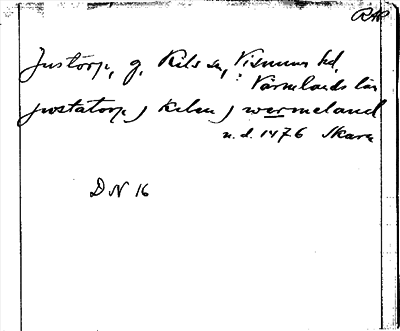 Justorp, g. Kils sn, Visnums hd,
Värmlands län
justatorp j kelsn j wermeland
n. d. 1476 Skara
DN 16